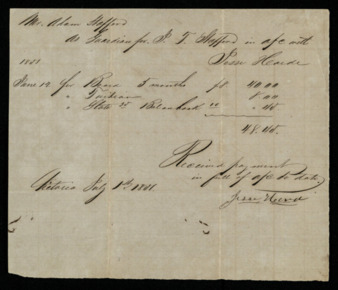 Mr. Adam Stafford
As Guardian for J. T. Stafford in a/c with
1861
June 12 for Board 5 months $ 40.00
" Tuition 8.00
" Slate 25 .45
48.45
Received payment
in full of a/c to date
Victoria July 1st 1861